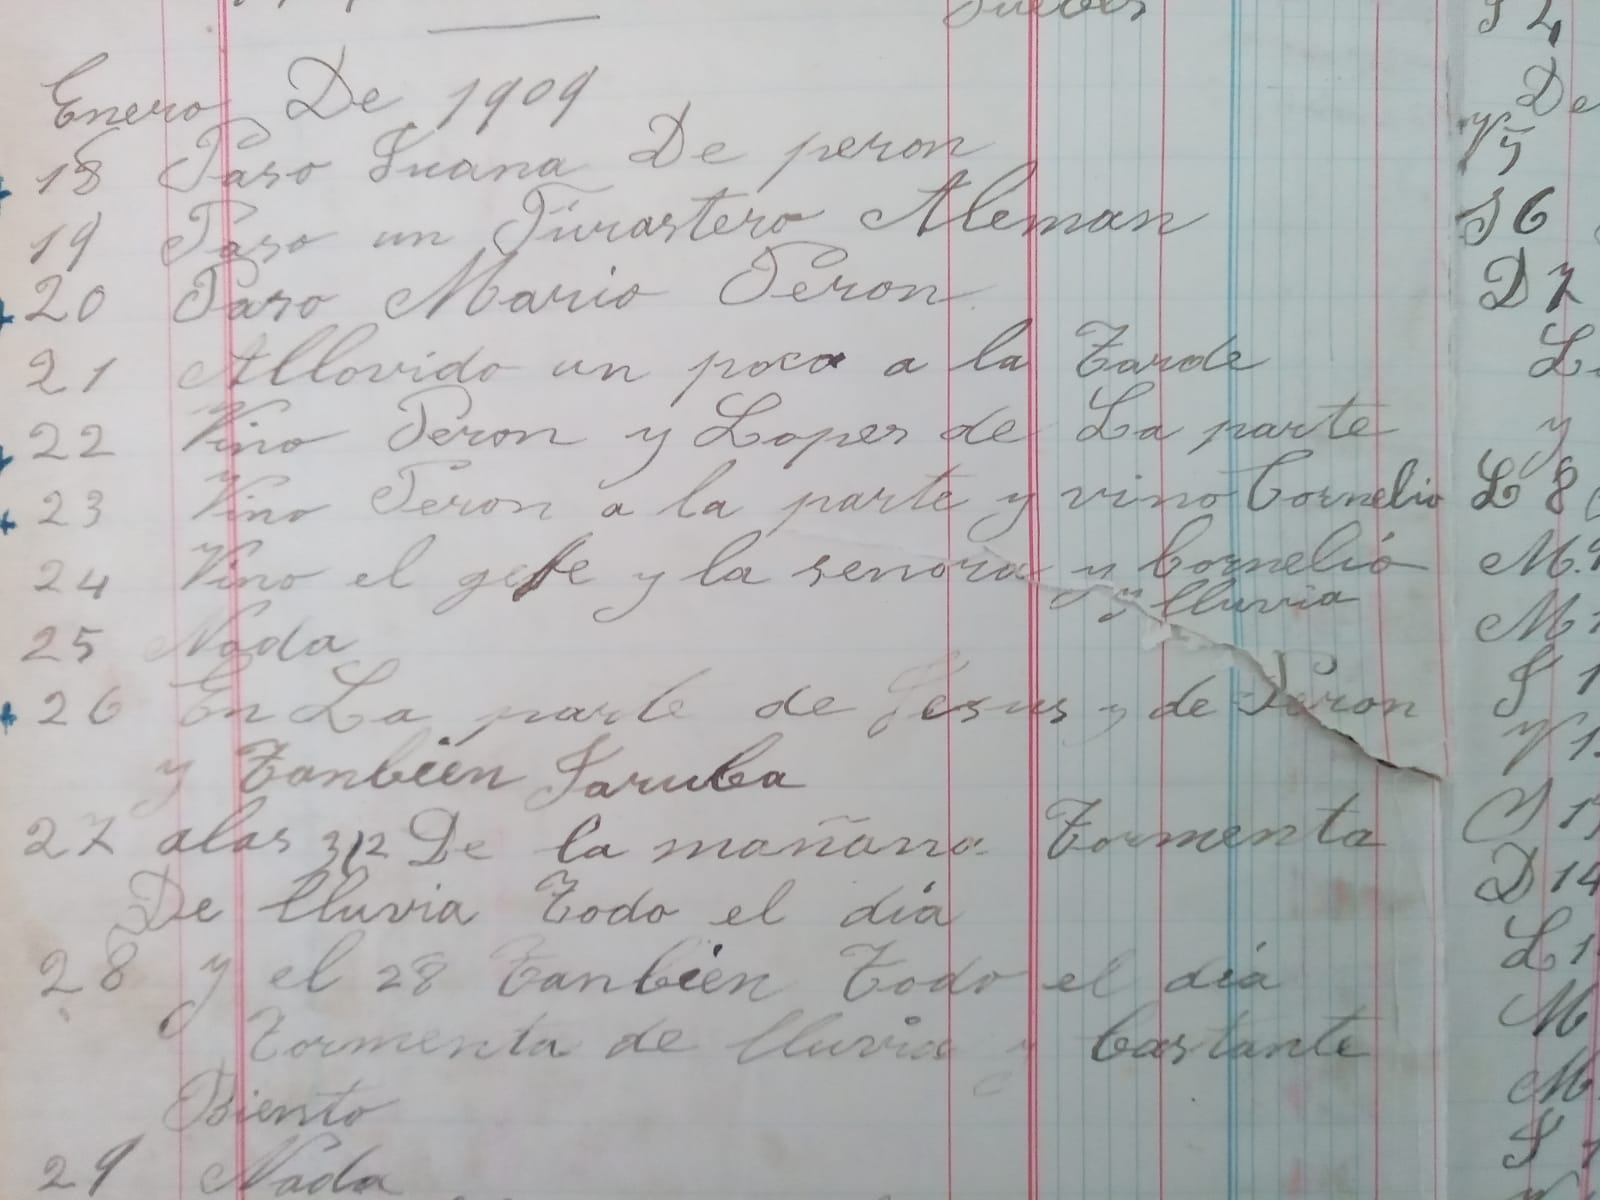 Jueves
Enero De 1909
18 Paso Juana De peron
19 Paso un Furastero Aleman
20 Paso Mario Peron
21 Allovido un poco a la Tarde
22 Vino Peron y Lopes de La parte
23 Vino Peron a la parte y vino Cornelio
24 Vino el gefe y la senora y Cornelió
y lluvia
25 Nada
26 En La parte de Jesus y de Peron
y Tanbien Saruba
27 alas 3 1/2 De la mañana Tormenta
De lluvia Todo el día
28 y el 28 Tanbien Todo el día
Tormenta de lluvia y bastante
Biento
29 Nada
De
V 5
S 6
D 7
L
y
L 8
M. 9
M
J 1
V 1
D 14
L 1
M
M
J